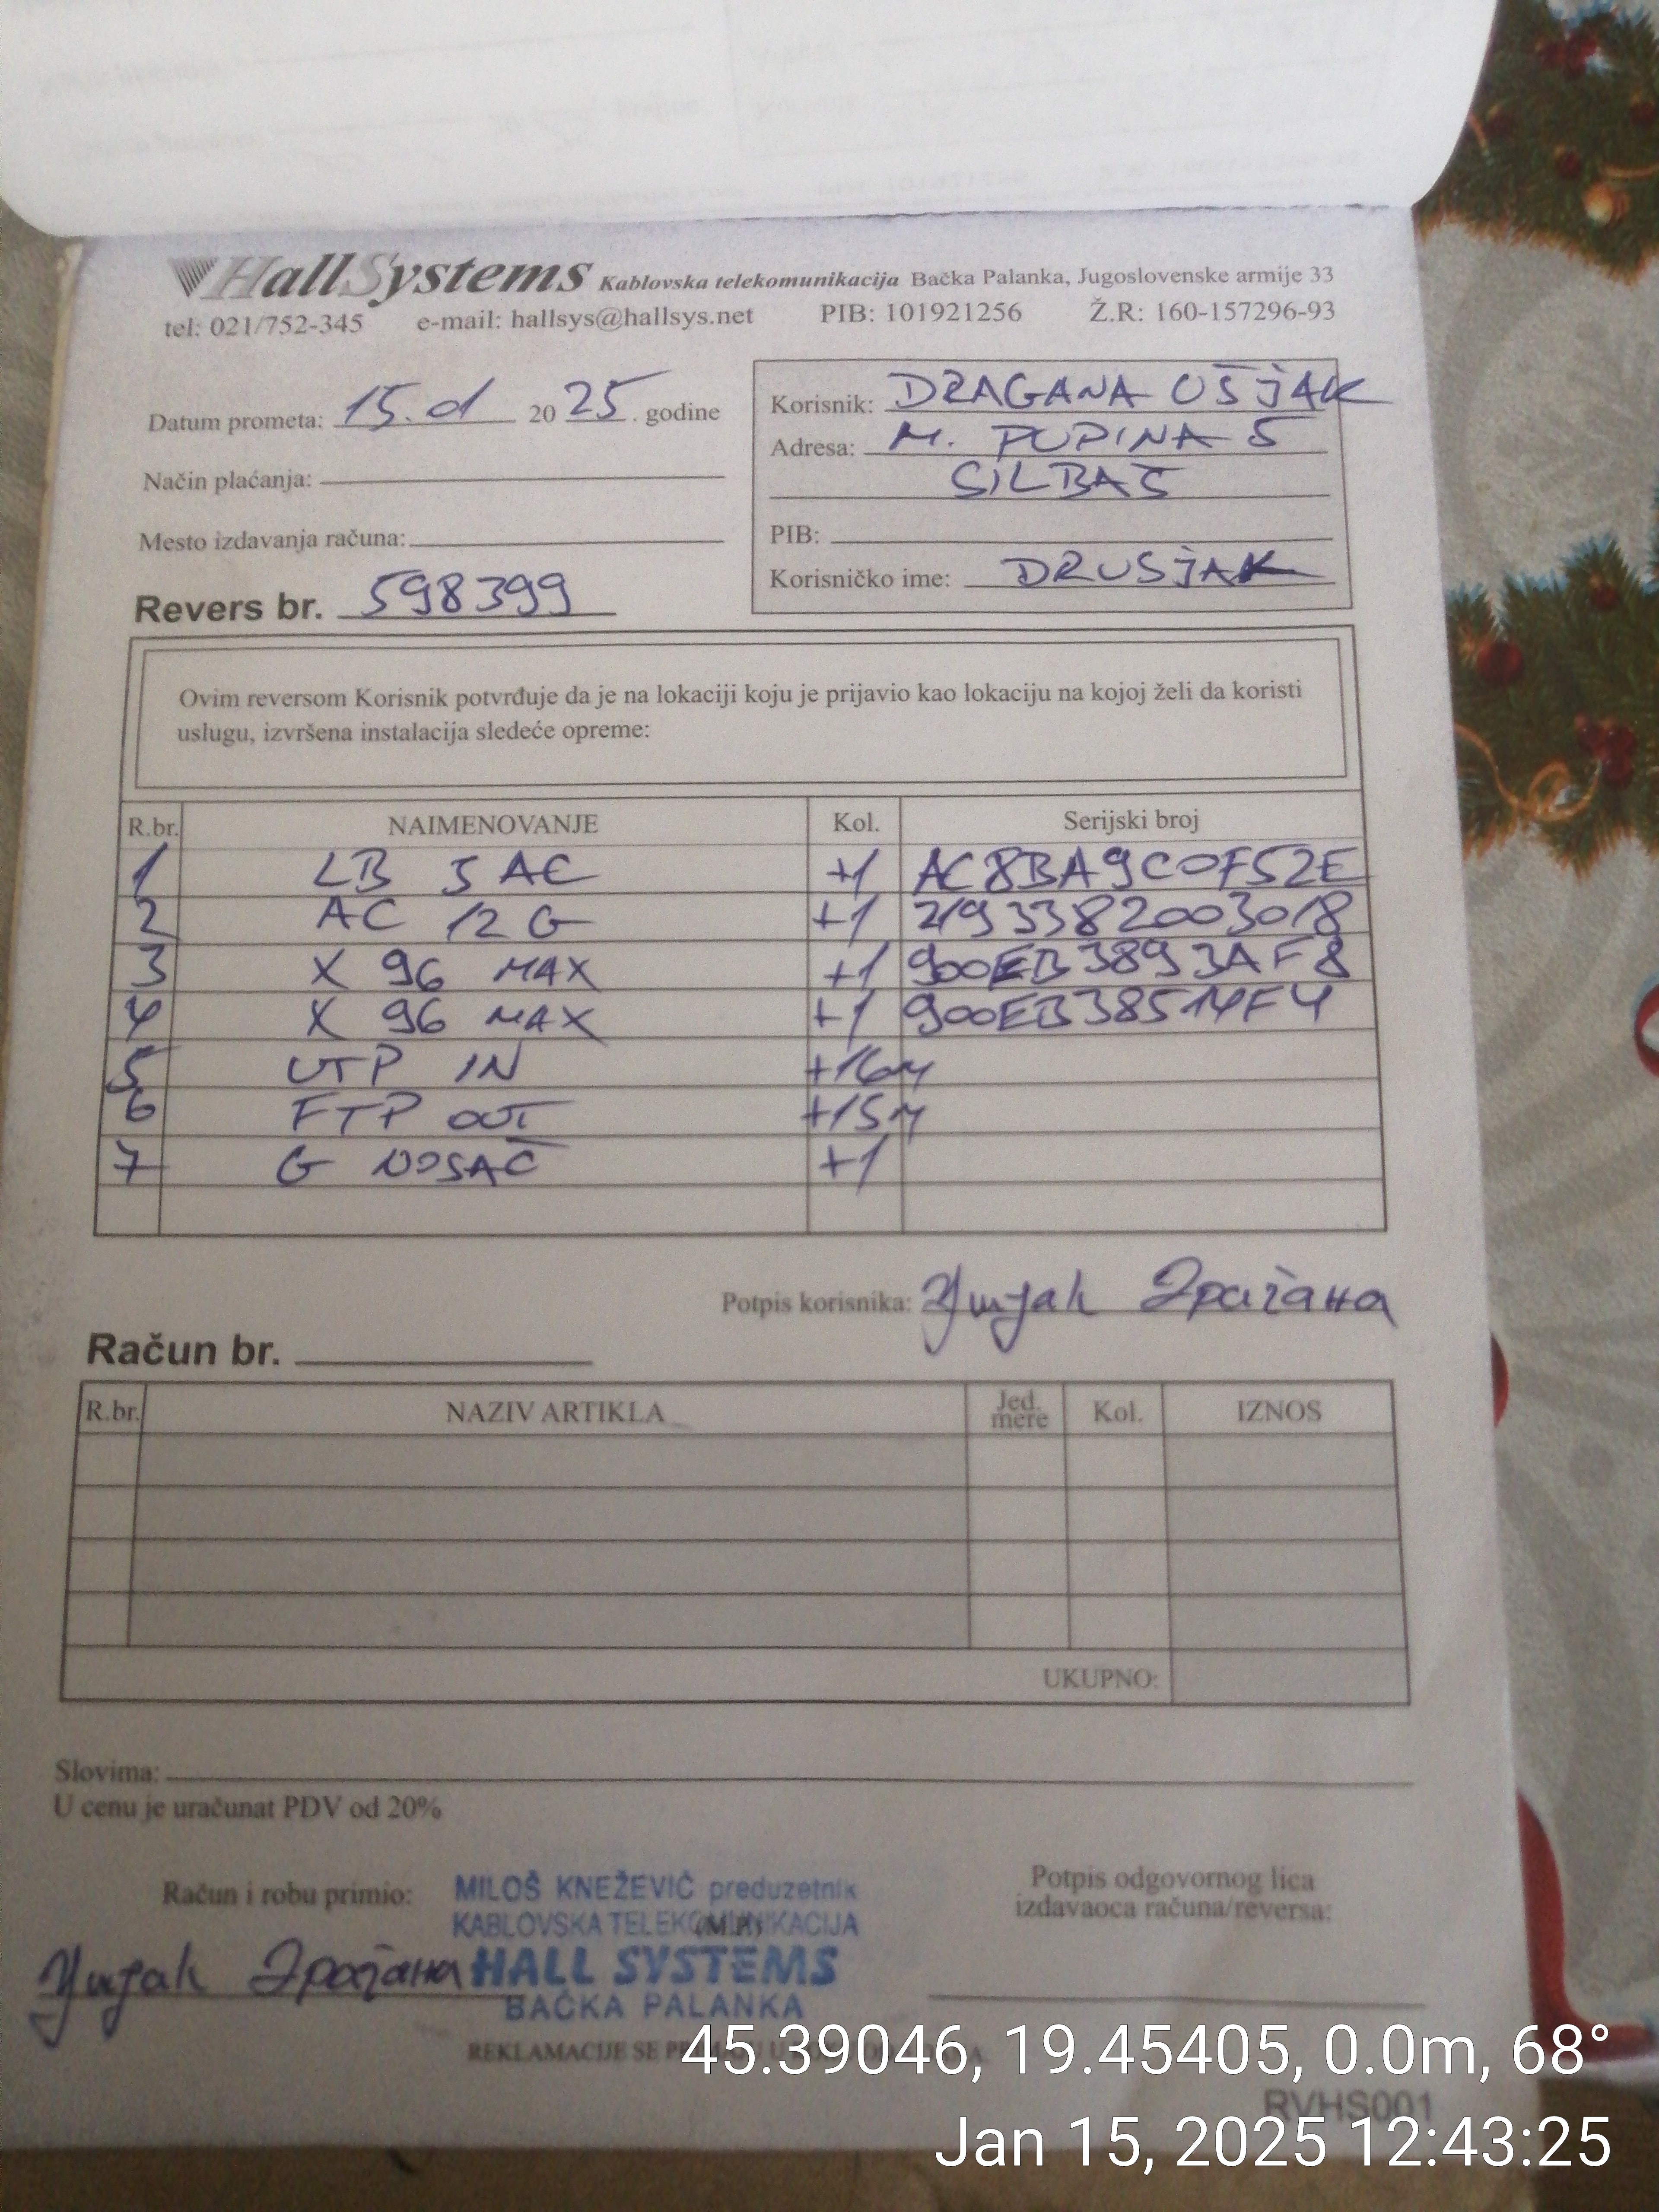 HallSystems Kablovska telekomunikacija Bačka Palanka, Jugoslovenske armije 33
tel: 021/752-345 e-mail: hallsys@hallsys.net PIB: 101921256 Ž.R: 160-157296-93
Datum prometa: 15. 01 2025. godine
Način plaćanja:
Mesto izdavanja računa:
Revers br. 598399
Korisnik: DRAGANA UŠJAK
Adresa: M. PUPINA 5
SILBAŠ
PIB:
Korisničko ime: DRUSJAK
Ovim reversom Korisnik potvrđuje da je na lokaciji koju je prijavio kao lokaciju na kojoj želi da koristi
uslugu, izvršena instalacija sledeće opreme:
R.br. NAIMENOVANJE Kol. Serijski broj
1 LB 5 AC +1 AC8BA9C0F52E
2 AC 12 G +1 2193382003018
3 X 96 MAX +1 900EB3893AF8
4 X 96 MAX +1 900EB38514F4
5 UTP IN +16m
6 FTP OUT +15m
7 G NOSAČ +1
Potpis korisnika: Ушјак Драгана
Račun br.
R.br. NAZIV ARTIKLA Jed. mere Kol. IZNOS
UKUPNO:
Slovima:
U cenu je uračunat PDV od 20%
Račun i robu primio:
Ушјак Драгана
MILOŠ KNEŽEVIĆ preduzetnik
KABLOVSKA TELEKOMUNIKACIJA
(M.P.)
HALL SYSTEMS
BAČKA PALANKA
Potpis odgovornog lica
izdavaoca računa/reversa:
REKLAMACIJE SE
45.39046, 19.45405, 0.0m, 68°
RVHS001
Jan 15, 2025 12:43:25